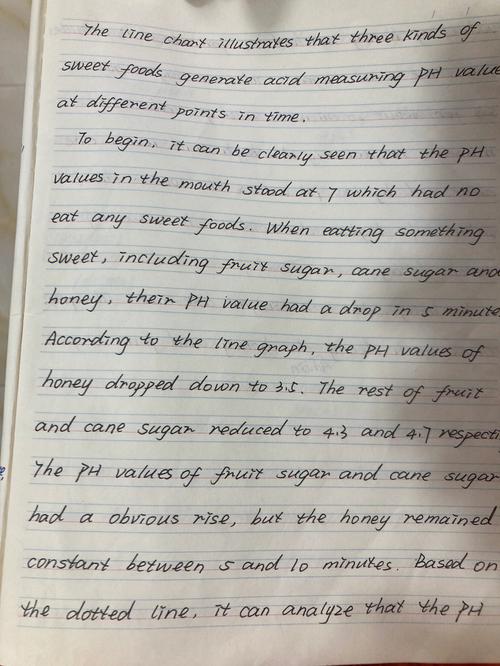 The line chart illustrates that three kinds of
sweet foods generate acid measuring PH value
at different points in time.
To begin, it can be clearly seen that the PH
values in the mouth stood at 7 which had no
eat any sweet foods. When eatting something
sweet, including fruit sugar, cane sugar and
honey, their PH value had a drop in 5 minute
According to the line graph, the PH values of
honey dropped down to 3.5. The rest of fruit
and cane sugar reduced to 4.3 and 4.7 respecti
The PH values of fruit sugar and cane sugar
had a obvious rise, but the honey remained
constant between 5 and 10 minutes. Based on
the dotted line, it can analyze that the PH